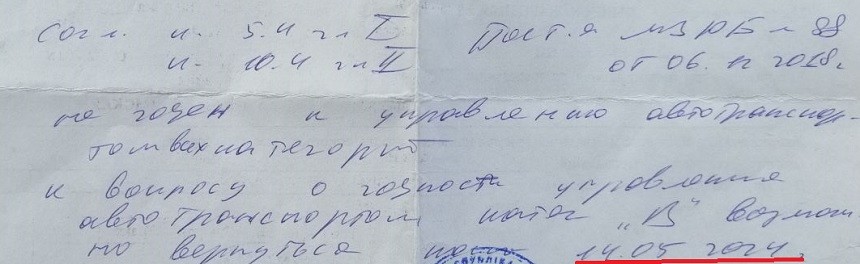 Согл. п. 5.4 гл I Пост.я МЗ РБ № 88
п. 10.4 гл II от 06. 12 2018г
не годен к управлению автотранспор-
том всех категорий
к вопросу о годности управления
автотранспортом катег "В" возмож
но вернуться после 14.05 2024.
СПУБЛІКА